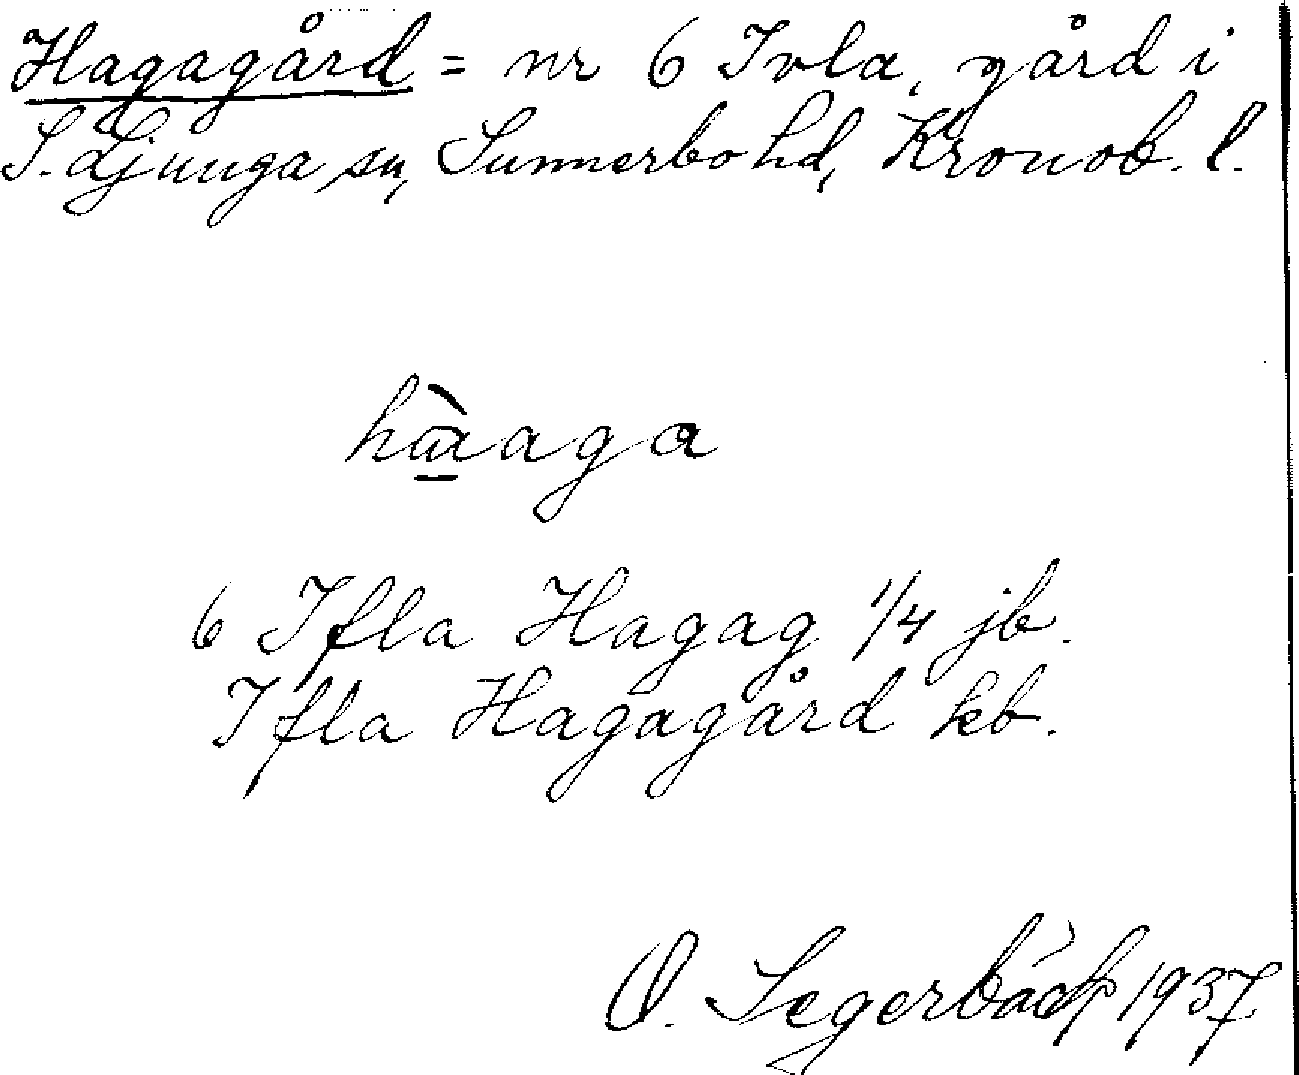 Hagagård = nr 6 Ivla, gård i
S. Ljunga sn, Sunnerbo hd, Kronob. l.
hàaga
6 Ifla Hagag 1/4 jb.
Ifla Hagagård kb.
O. Segerbäck 1937